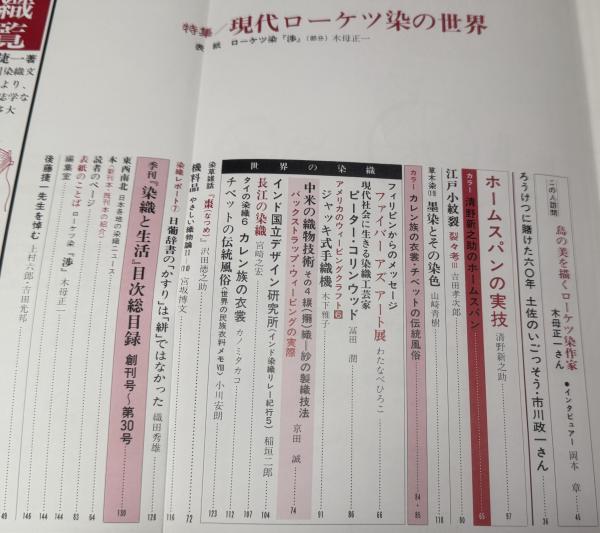 特集/現代ローケツ染の世界
表紙 ローケツ染『渉』(部分)木母正一
この人訪問 島の美を描くローケツ染作家
木母正一さん ●インタビュアー 岡本 章 46
ろうけつに賭けた六〇年 土佐のいごっそう・市川政一さん 36
ホームスパンの実技 清野新之助 97
カラー 清野新之助のホームスパン 65
江戸小紋裂 裂々考Ⅲ 吉田孝次郎 80
草木染⑱ 墨染とその染色 山崎青樹 118
カラー カレン族の衣裳・チベットの伝統風俗 84・85
世界の染織
フィリピンからのメッセージ
ファイバー アズ アート展 わたなべひろこ 66
現代社会に生きる染織工芸家
ピーター・コリンウッド 冨田 潤 78
アメリカのウィービングクラフト
ジャッキ式手織機 木下雅子 91
中米の織物技術 その4 綟(搦)織—紗の製織技法
バックストラップ・ウィービングの実際 京田 誠 74
インド国立デザイン研究所(インド染織リレー紀行5) 稲垣二郎 104
長江の染織 宮崎之宏 107
タイの染織6 カレン族の衣裳 カノミタカコ 112
チベットの伝統風俗(世界の民族衣料メモⅧ) 小川安朗
染草雑話『棗(なつめ)』沢田徳之助 123
機料品 やさしい織物論Ⅱ—⑩ 宮坂博文 72
染織レポート⑦ 日葡辞書の「かすり」は「絣」ではなかった 織田秀雄 128
季刊『染織と生活』目次総目録 創刊号～第30号 130
東西南北 日本各地の染織ニュース
本〈新刊本・既刊本の紹介〉
読者のページ 64
表紙のことば ローケツ染『渉』木母正一 83
編集室 144
後藤捷一先生を悼む 上村六郎・吉田光邦
織
覧
捷一著
染織文
より、
誌学な
大